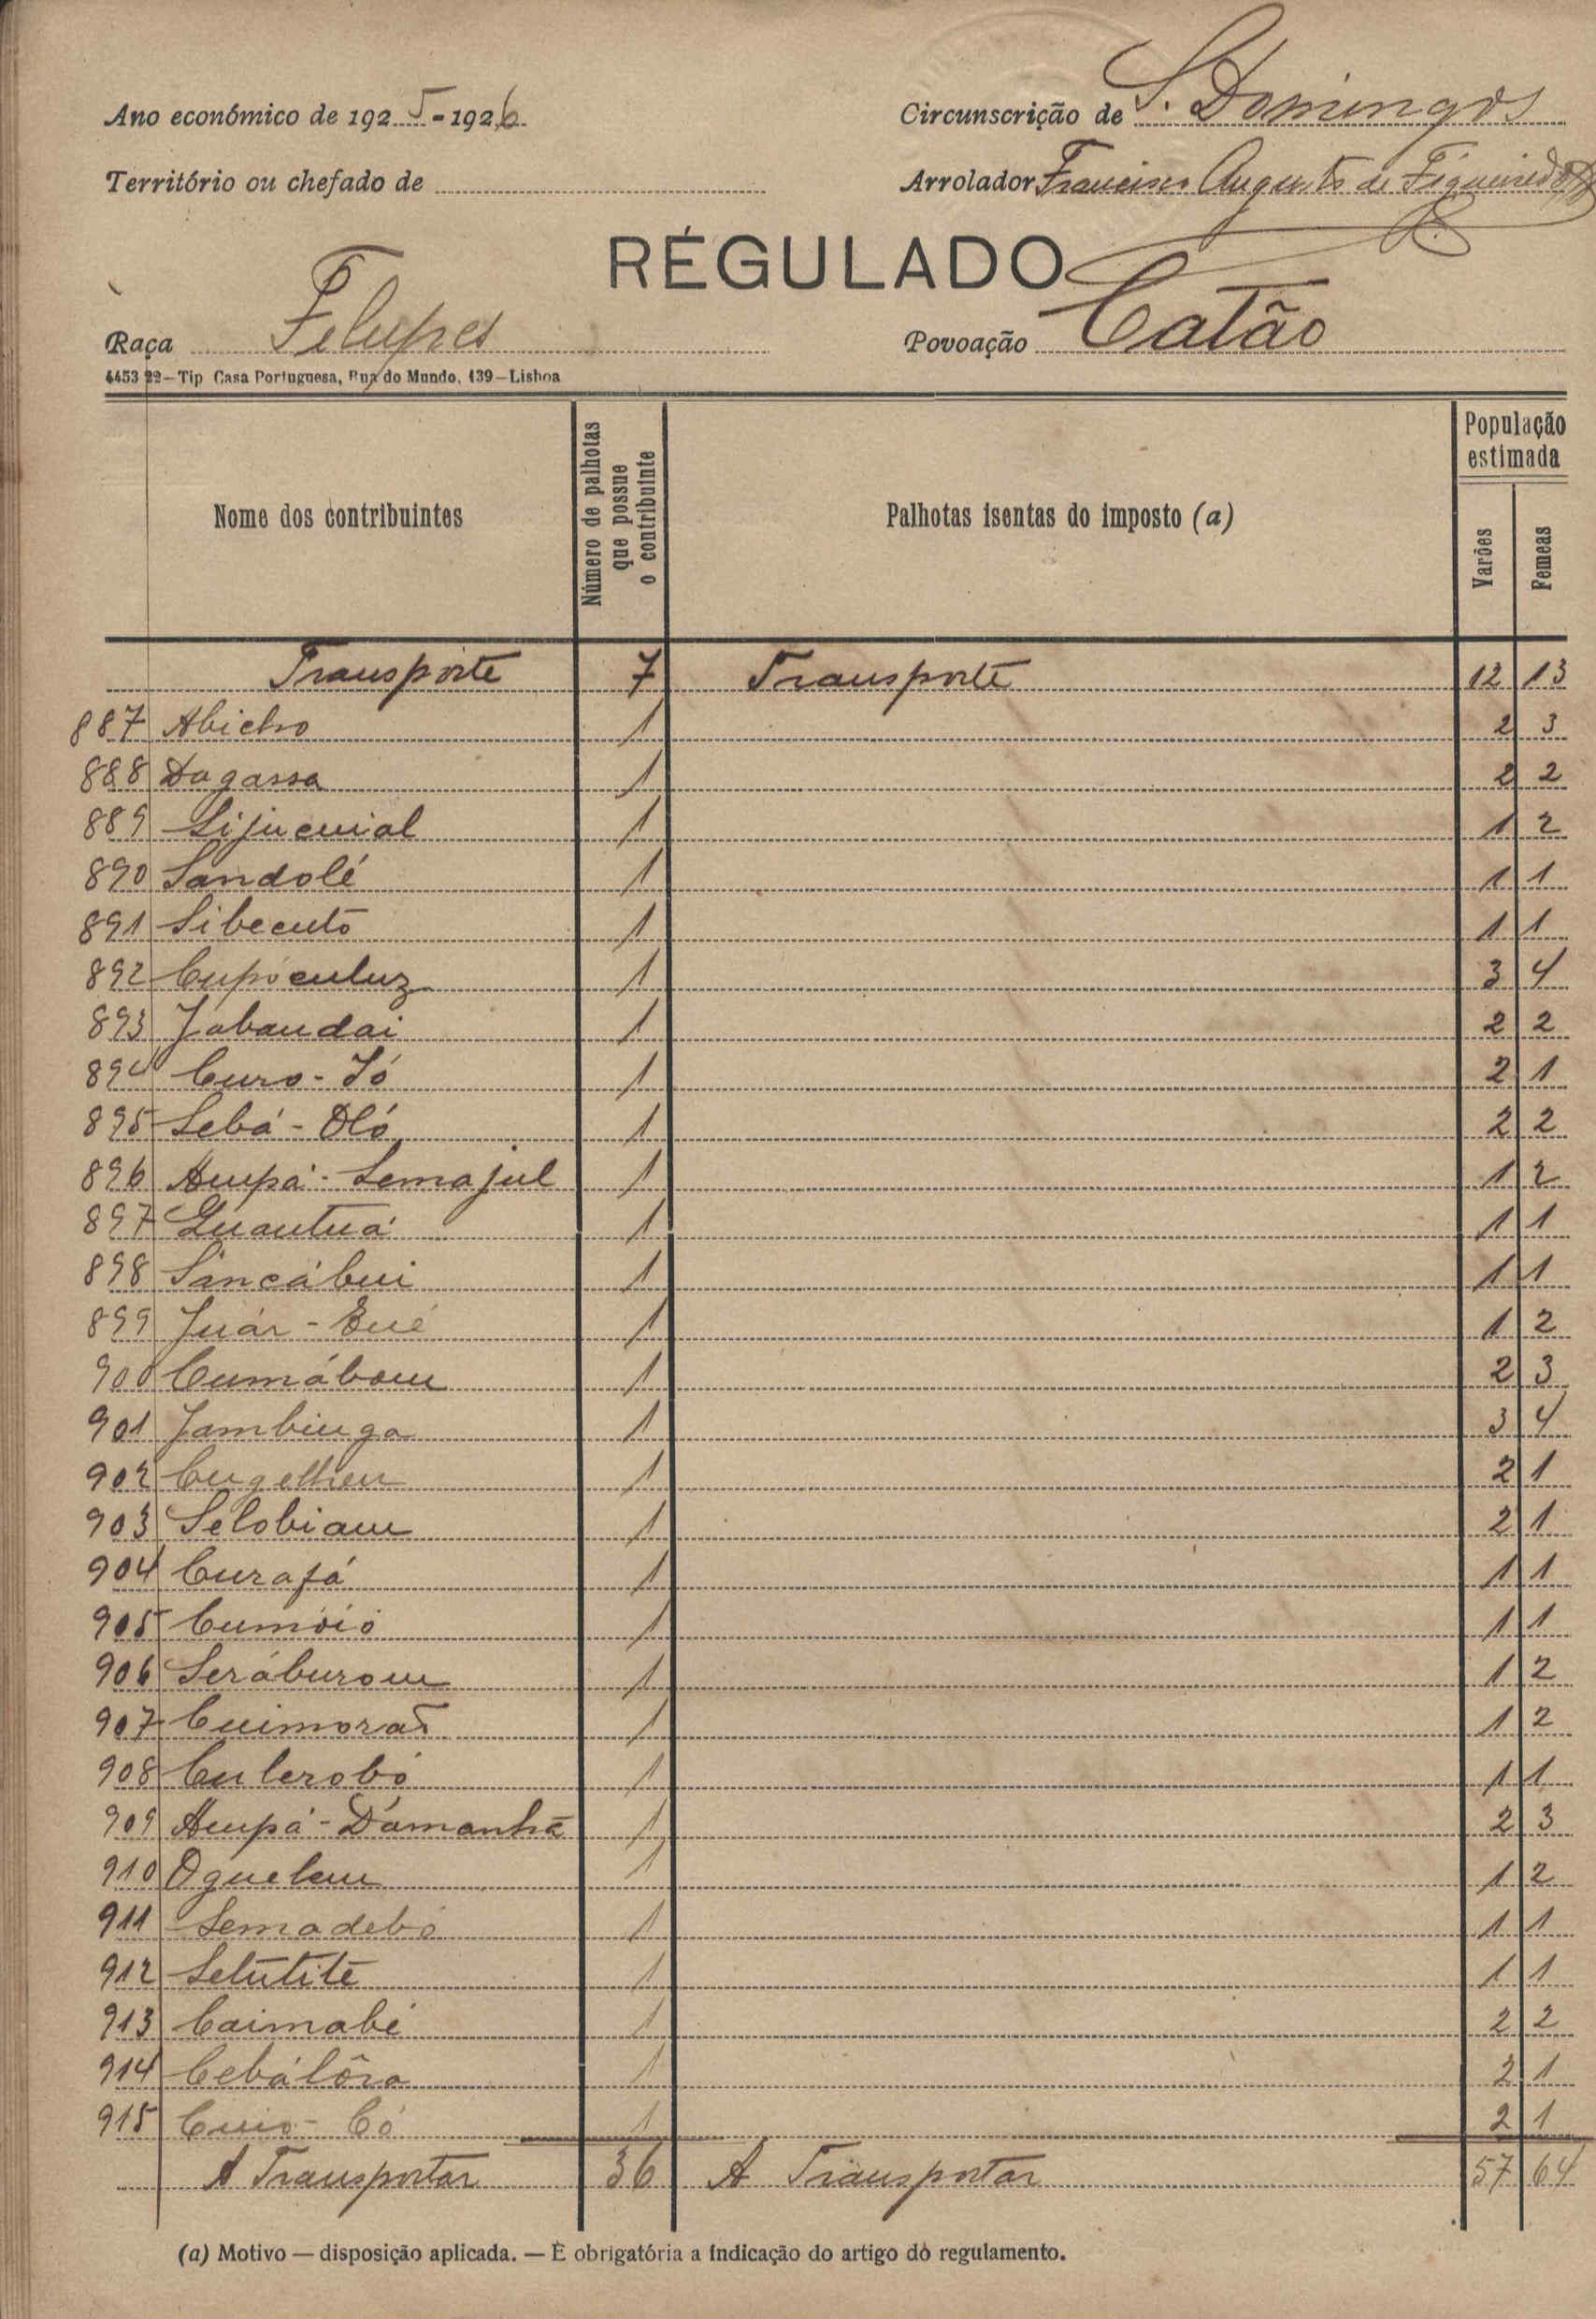 Ano económico de 1925-1926
Circunscrição de S. Domingos
Território ou chefado de
Arrolador Francisco Augusto de Figueiredo
RÉGULADO
Raça Felupes
Povoação Catão
4453 22—Tip Casa Portuguesa, Rua do Mundo, 139—Lisboa
Nome dos contribuintes
Número de palhotas que possue o contribuinte
Palhotas isentas do imposto (a)
População estimada
Varões
Femeas
Transporte 7 Transporte 12 13
887 Abicho 1 2 3
888 Dagassa 1 2 2
889 Sijucuial 1 1 2
890 Sandolé 1 1 1
891 Sibecuto 1 1 1
892 Cupóculuz 1 3 4
893 Jabaudai 1 2 2
894 Curo-Jó 1 2 1
895 Sebá-Oló 1 2 2
896 Aupá-Semajul 1 1 2
897 Guautuá 1 1 1
898 Sancábui 1 1 1
899 Juár-Eué 1 1 2
900 Cumábom 1 2 3
901 Jambuiga 1 3 4
902 1 2 1
903 Selobiam 1 2 1
904 Curafá 1 1 1
905 Cumóió 1 1 1
906 Seráburom 1 1 2
907 Cuimorat 1 1 2
908 Culerobó 1 1 1
909 Aupá-Dámanhã 1 2 3
910 Oguelem 1 1 2
911 Semadebó 1 1 1
912 Setutite 1 1 1
913 Caimabé 1 2 2
914 Cebálôra 1 2 1
915 Cuio-Có 1 2 1
A Transportar 36 A Transportar 57 64
(a) Motivo — disposição aplicada. — É obrigatória a indicação do artigo do regulamento.